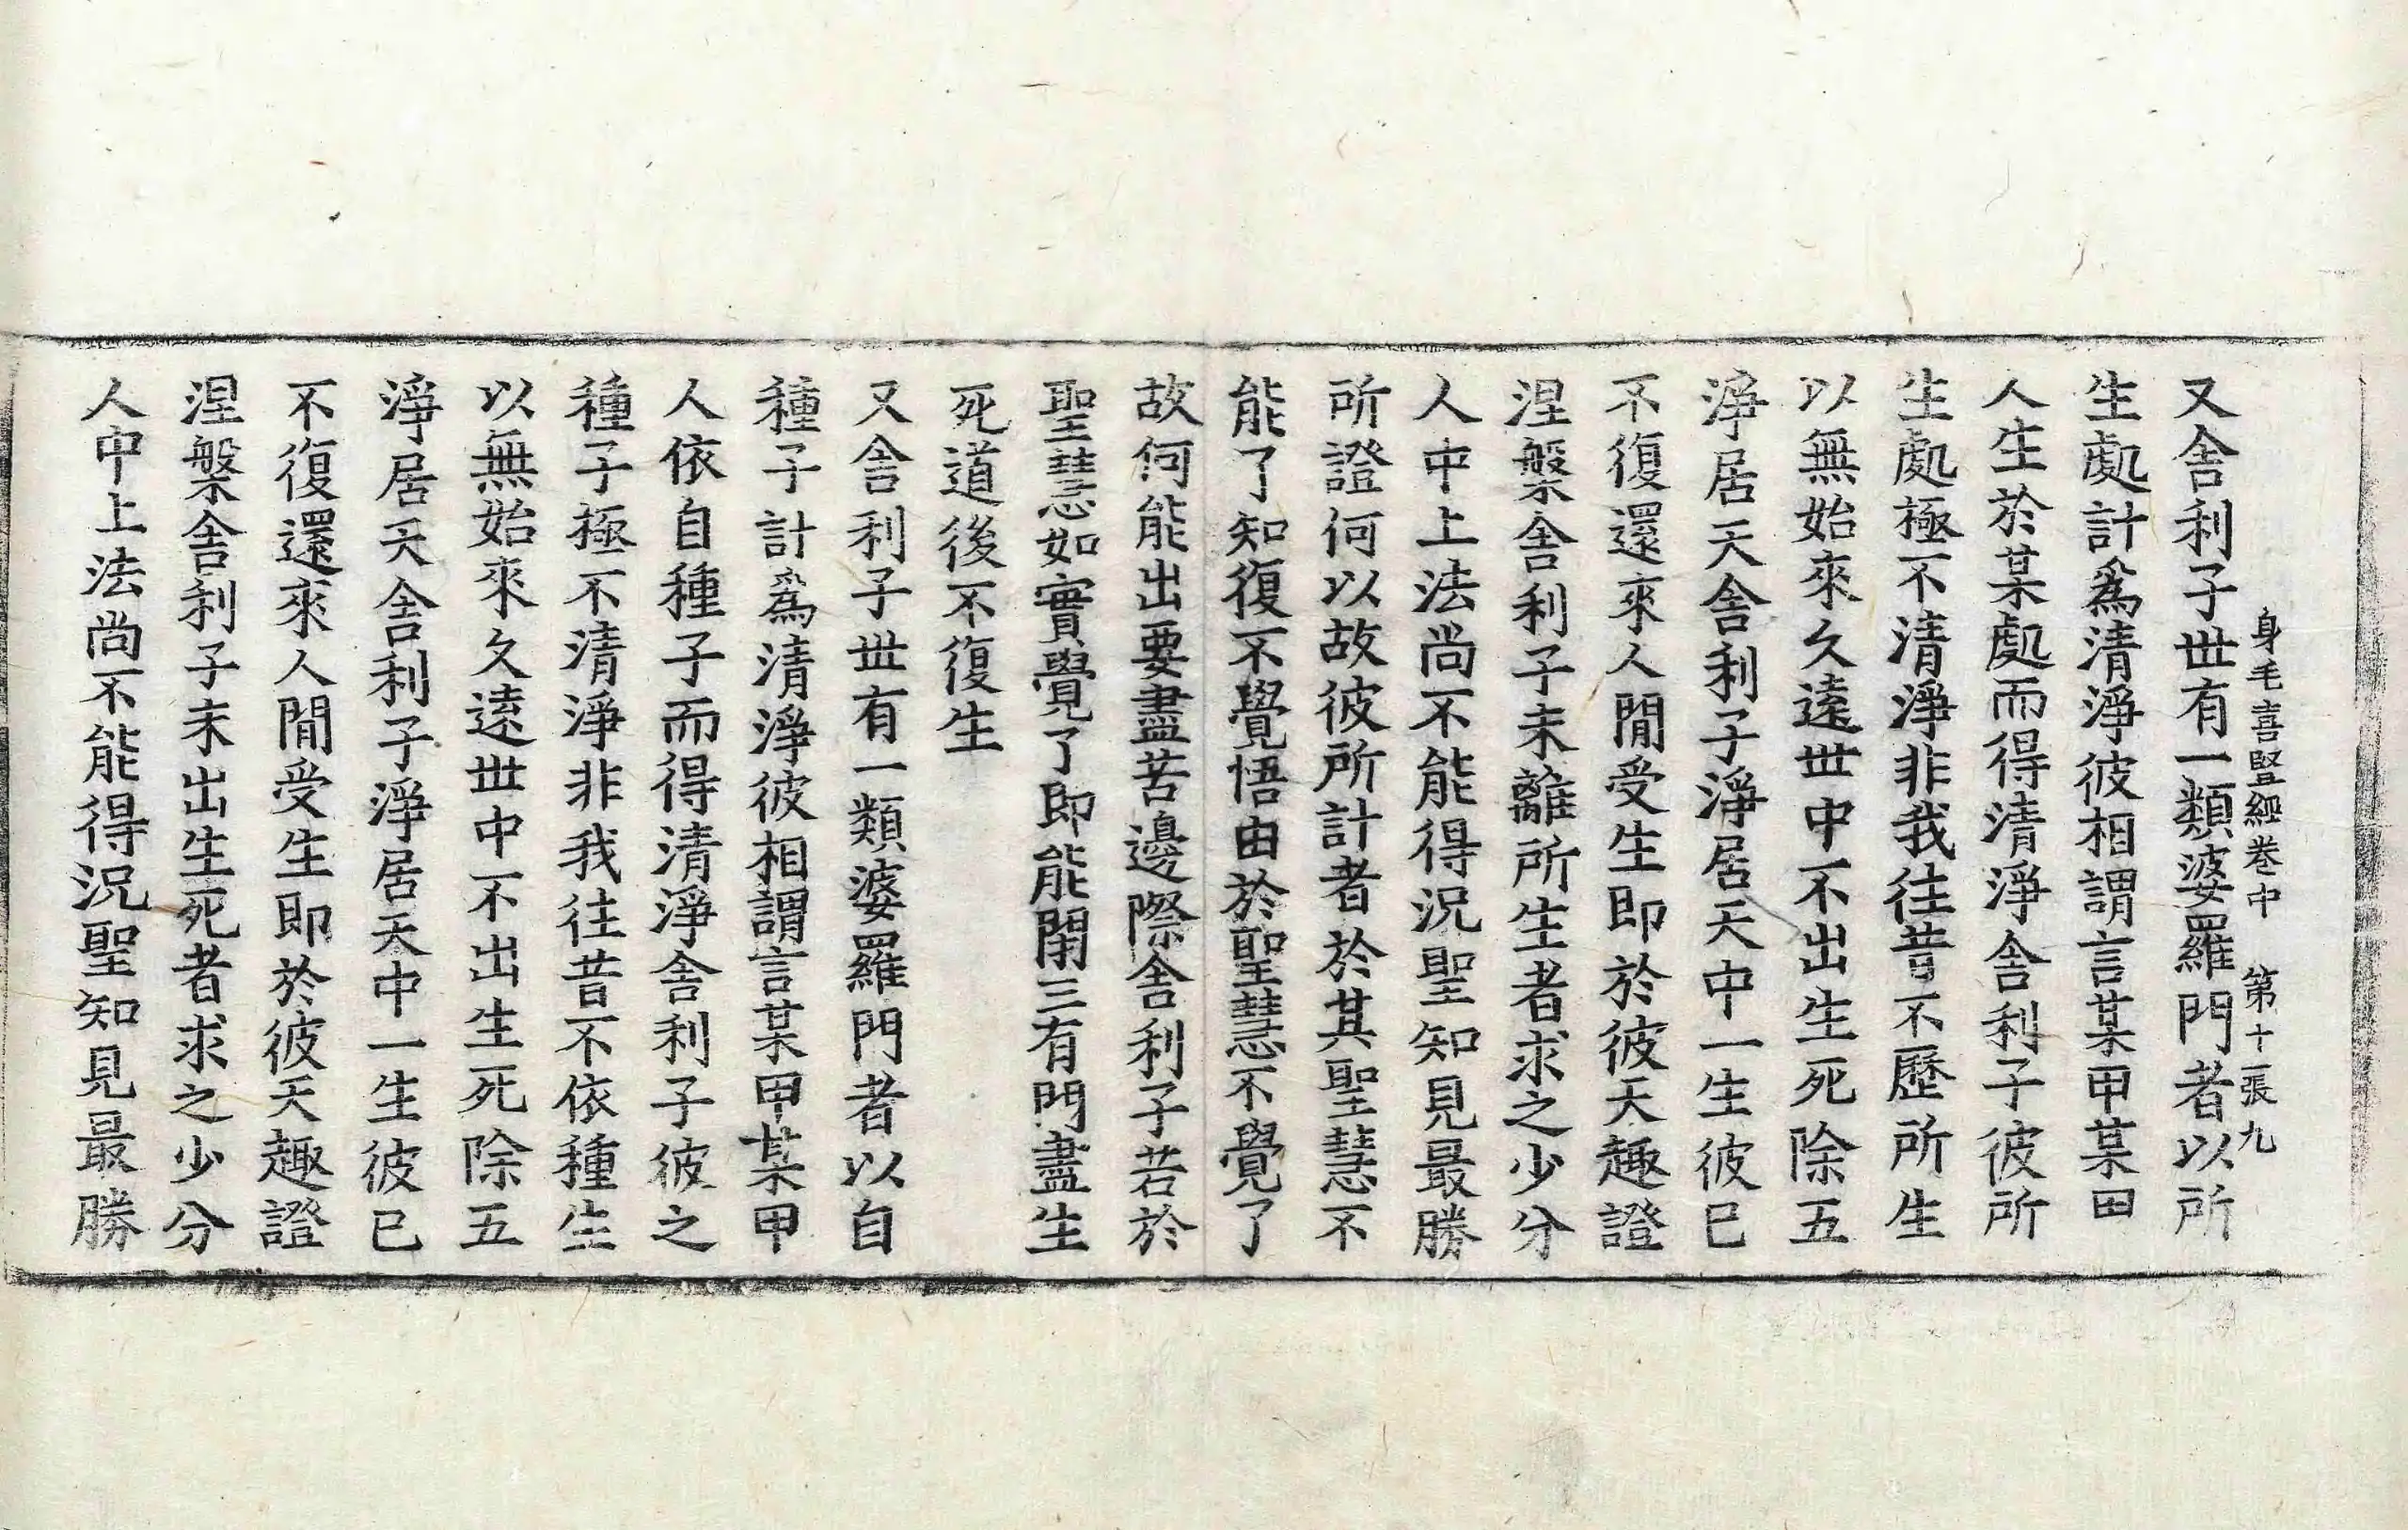 身毛喜竪經卷中 第十一張 九
又舍利子世有一類婆羅門者以所
生處計爲清淨彼相謂言某甲某田
人生於某處而得清淨舍利子彼所
生處極不清淨非我往昔不歷所生
以無始來久遠世中不出生死除五
淨居天舍利子淨居天中一生彼已
不復還來人閒受生即於彼天趣證
涅槃舍利子未離所生者求之少分
人中上法尚不能得況聖知見最勝
所證何以故彼所計者於其聖慧不
能了知復不覺悟由於聖慧不覺了
故何能出要盡苦邊際舍利子若於
聖慧如實覺了即能閉三有門盡生
死道後不復生
又舍利子世有一類婆羅門者以自
種子計爲清淨彼相謂言某甲某甲
人依自種子而得清淨舍利子彼之
種子極不清淨非我往昔不依種生
以無始來久遠世中不出生死除五
淨居天舍利子淨居天中一生彼已
不復還來人閒受生即於彼天趣證
涅槃舍利子未出生死者求之少分
人中上法尚不能得況聖知見最勝